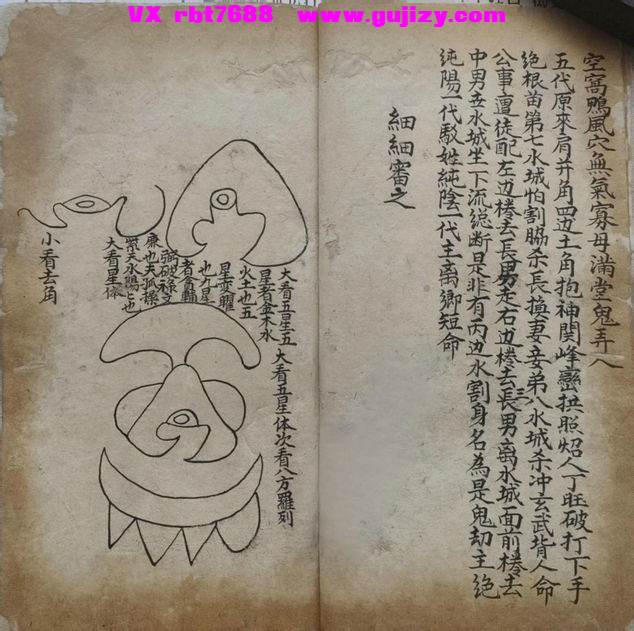 VX rbt7688 www.gujizy.com
空窩鴨風穴無氣寡母滿堂鬼弄人
五代原來肩井角四边土角抱神関峰巒拱照炤人丁旺破打下手
絶根苗第七水城怕割脇杀長換妻妾弟八水城杀冲玄武背人命
公事亶徒配左边棬去長男走右边棬去三長男离水城面前棬去
中男丟水城坐下流総断是非有两边水割身名為是鬼劫主絶
純陽一代駁姓純陰一代主离鄉短命
細細審之
大看五星五
星者金木水
火土也五
星变曜
也九星
者貪輔
弼破祿文
廉也夫孤操
紫夭水鴨七也
大看星体
小看去角
大看五星体次看八方羅列